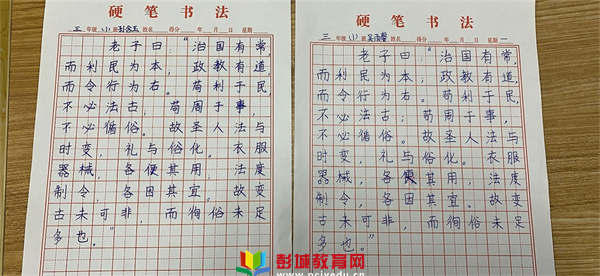 硬笔书法
三年级(1)班 姓名 得分 年 月 日 星期
老子曰：“治国有常，
而利民为本；政教有道，
而令行为右。苟利于民，
不必法古；苟周于事，
不必循俗。故圣人法与
时变，礼与俗化。衣服
器械，各便其用；法度
制令，各因其宜。故变
古未可非，而徇俗未足
多也。”
硬笔书法
三年级(1)班 姓名 得分 年 月 日 星期一
老子曰：“治国有常，
而利民为本；政教有道，
而令行为右。苟利于民，
不必法古；苟周于事，
不必循俗。故圣人法与
时变，礼与俗化。衣服
器械，各便其用；法度
制令，各因其宜。故变
古未可非，而徇俗未足
多也。”
彭城教育网
www.pcjyedu.cn